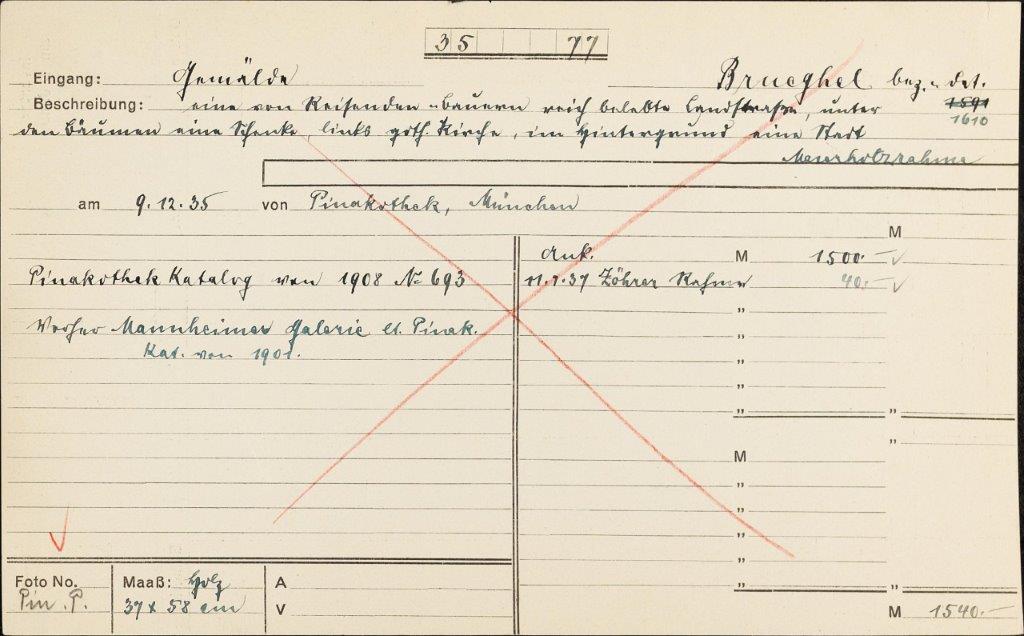 35 77
Eingang: Gemälde Brueghel bez. u. dat.
Beschreibung: eine von Reisenden u. Bauern reich belebte Landstrasse, unter 1591
1610
den Bäumen eine Schenke, links goth. Kirche, im Hintergrund eine Stadt
am 9.12.35 von Pinakothek, München
M
Ank. M 1500.— √
Pinakothek Katalog von 1908 No 693 11.1.37 Zöhrer Rahmen „ 40.— √
„
Vorher Mannheimer Galerie lt. Pinak. „
Kat. von 1901. „
„
„ „
„
M
„
„
„
„
„ „
Foto No. Maaß: Holz A
Pin. P. 37 x 58 cm V
M 1540.—